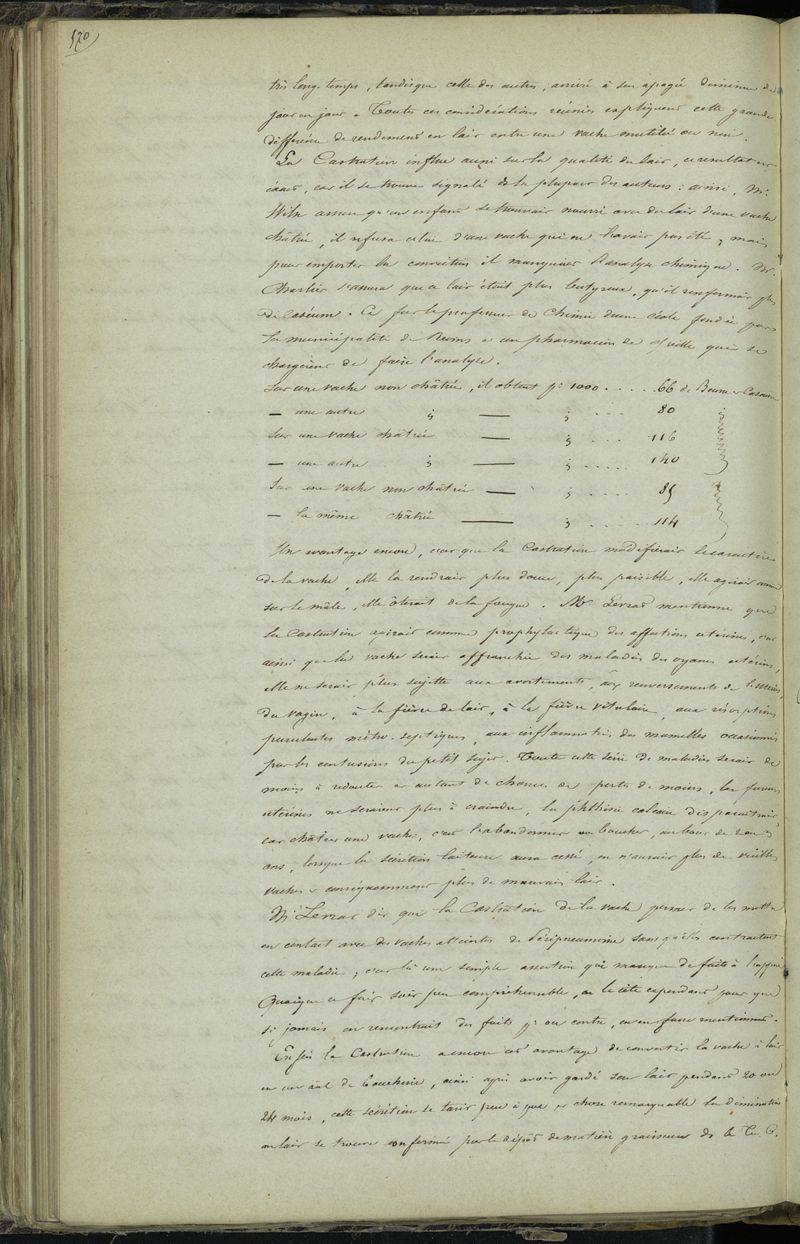 170
très long-temps, tandisque celle des autres, arrivé à son apogée diminue de
jour en jour. Toutes ces considérations réunies expliquent cette grande
différence de rendement en lait entre une vache mutilée ou non.
La Castration influe aussi sur la qualité du lait, ce résultat est
exact, car il se trouve signalé de la plupart des auteurs : ainsi, Mr
assure qu'un enfant se trouvait nourri avec du lait d'une vache
châtrée, il refusa celui d'une vache qui ne l'avait pas été ; mais
pour emporter la conviction il manquait l'analyse chimique. Mr
Charlier s'assura que ce lait était plus butyreux, qu'il renfermait plus
de Caséum. Ce fut le professeur de Chimie d'une école fondée par
la municipalité de Reims et un pharmacien de cette ville qui se
chargèrent de faire l'analyse.
Sur une vache non châtrée, il obtint pr 1000 ..... 66 de Beurre & Caséum
— une autre " — " ... 80 "
Sur une vache châtrée — " .... 116
— une autre " — " .... 140
Sur une vache non châtrée — " .... 85
— la même châtrée — " ..... 114
Un avantage encore, c'est que la Castration modifierait le caractère
de la vache, elle la rendrait plus douce, plus paisible, elle agirait comme
sur le mâle, elle ôterait de la fougue. Mr Levrat mentionne que
la Castration agirait comme prophylactique des affections utérines, c'est
ainsi que la vache serait affranchie des maladies des organes utérins,
elle ne serait plus sujette aux avortements, aux renversements de l'utérus,
du vagin, à la fièvre de lait, à la fièvre vitulaire, aux résorptions
purulentes métro-septiques, aux inflammations des mamelles occasionnées
par les contusions du petit sujet. Toute cette série de maladies serait de
moins à redouter et autant de chances de pertes de moins, les fureurs
utérines ne seraient plus à craindre, la phthisie calcaire disparaîtrait,
car châtrer une vache, c'est l'abandonner au boucher, au bout de 2 ou 3
ans, lorsque la sécrétion laiteuse aura cessé, on n'aurait plus de vieilles
vaches & conséquemment plus de mauvais lait.
Mr Levrat dit que la Castration de la vache permet de les mettre
en contact avec des vaches atteintes de Péripneumonie sans qu'elles contractent
cette maladie ; c'est là une simple assertion qui manque de faits à l'appui.
Quoique ce fait soit peu compréhensible, on le cite cependant pour que
si jamais on rencontrait des faits pr ou contre, on en fasse mention.
Enfin la Castration a encore cet avantage de convertir la vache à lait
en animal de boucherie, ainsi après avoir gardé son lait pendant 20 ou
24 mois, cette sécrétion se tarit peu à peu et chose remarquable la diminution
en lait se trouve confirmée par le dépôt de matière graisseuse ds le T. C.